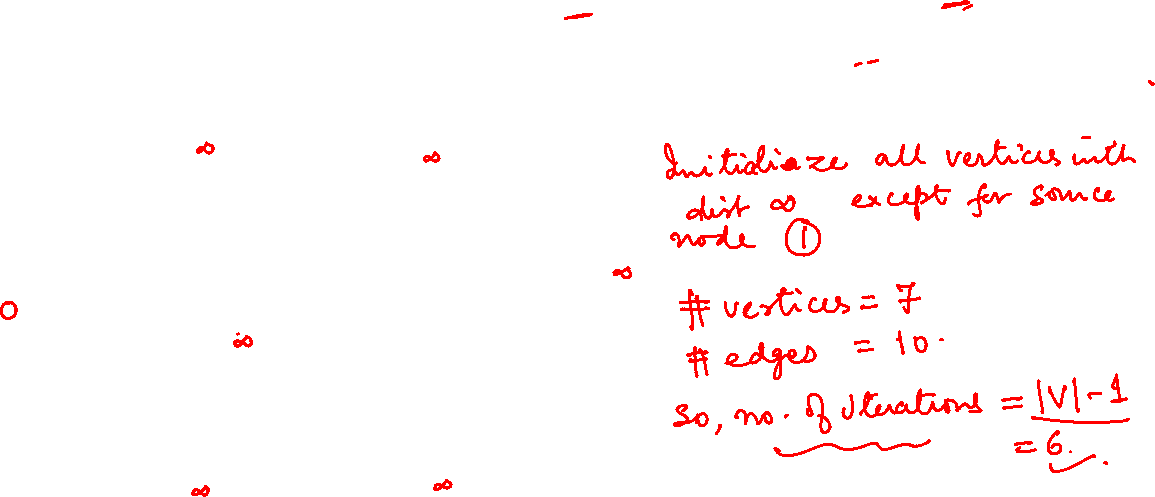 ∞ ∞
Initialize all vertices with
dist ∞ except for source
node ①
∞
0
# vertices = 7
∞
# edges = 10.
So, no. of iterations = |V| - 1
= 6.
∞ ∞